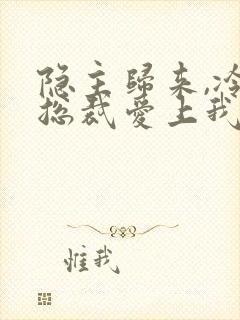 隐主歸来,冷
総裁爱上我
惟我